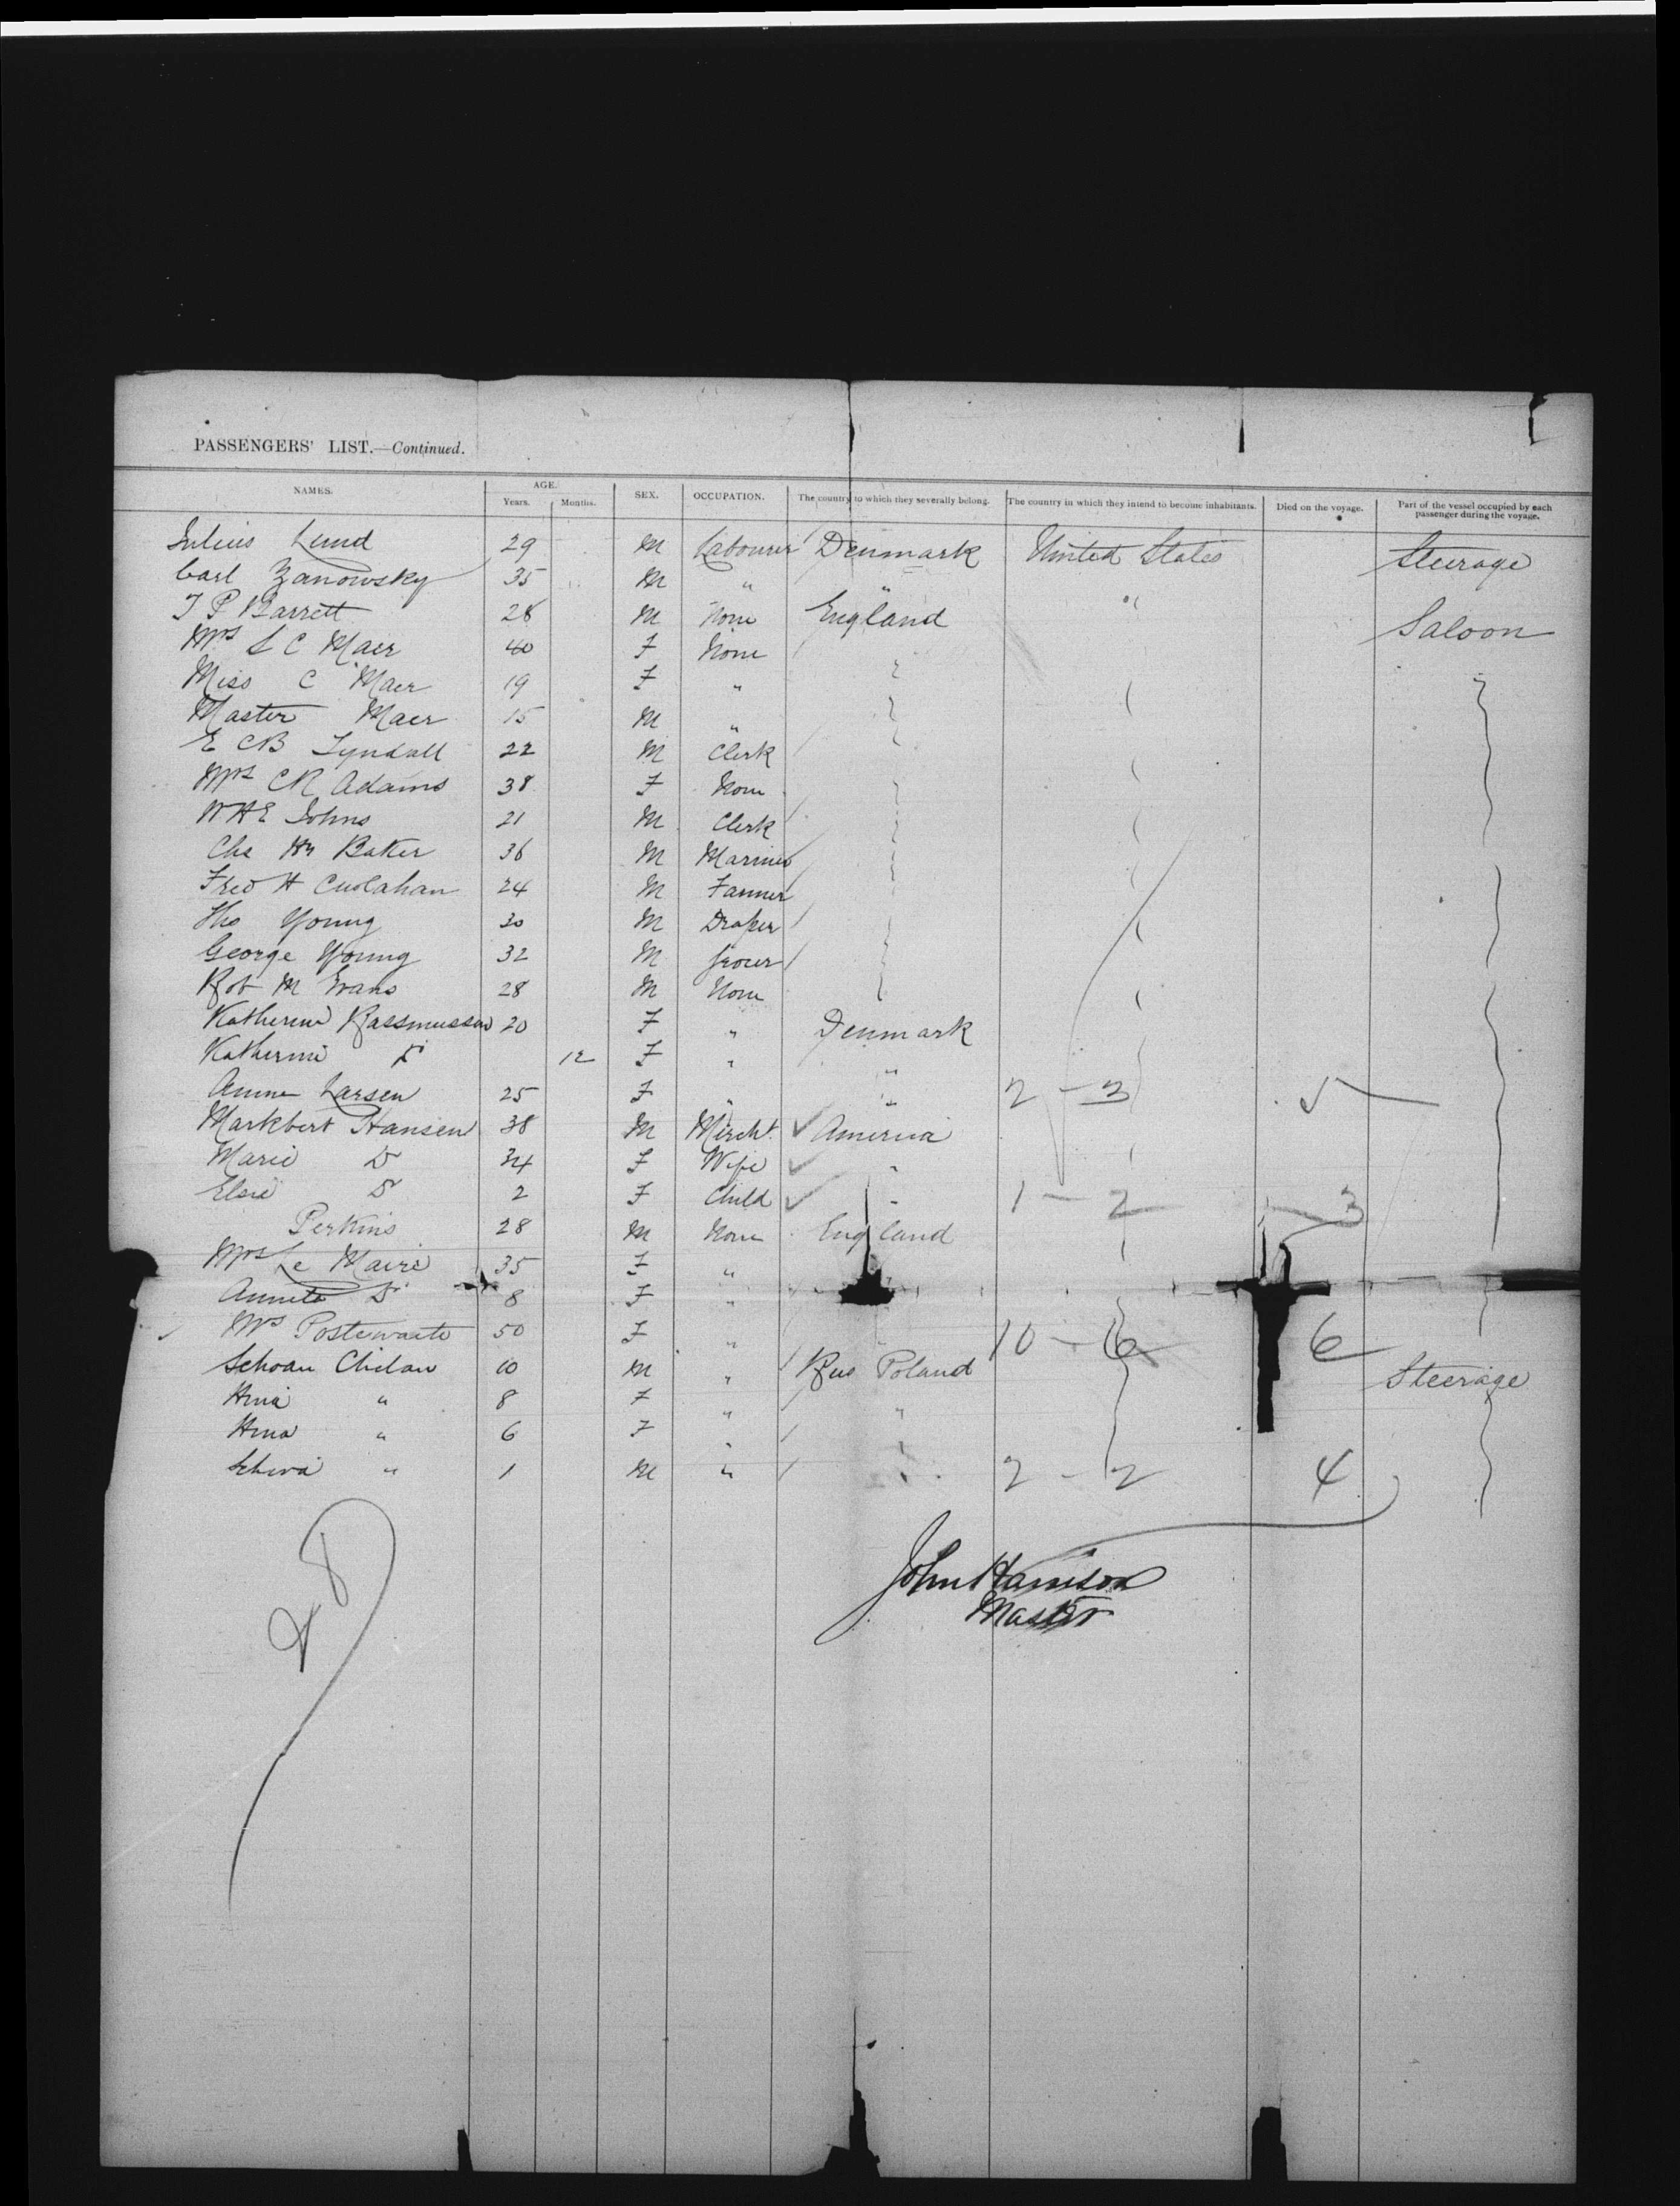 PASSENGERS' LIST.—Continued.
NAMES. AGE. Years. Months. SEX. OCCUPATION. The country to which they severally belong. The country in which they intend to become inhabitants. Died on the voyage. Part of the vessel occupied by each passenger during the voyage.
Julius Lund 29 M Labourer Denmark United States Steerage
Carl Zanowsky 35 M " " "
T P Barrett 28 M None England Saloon
Mrs S C Maer 40 F None
Miss C Maer 19 F "
Master Maer 15 M "
E C B Tyndall 22 M Clerk
Mrs C R Adams 38 F None
W H E Johns 21 M Clerk
Chs Hy Baker 36 M Mariner
Fred H Cuolahan 24 M Farmer
Tho Young 30 M Draper
George Young 32 M Grocer
Rob M Evans 28 M None
Katherine Rassmussen 20 F " Denmark
Katherine Do 12 F " "
Anne Larsen 25 F " " 2 - 3
Markbert Hansen 38 M Mercht. America
Marie Do 34 F Wife "
Elsie Do 2 F Child " 1 - 2 - 3
Perkins 28 M None England
Mrs Le Maire 35 F "
Annete Do 8 F "
Mrs Postewaite 50 F " 10 - 6 6
Schoan Chilau 10 M " Rus Poland Steerage
" 8 F " "
" 6 F " "
" 1 M " " 2 - 2 4
John Harrison
Master